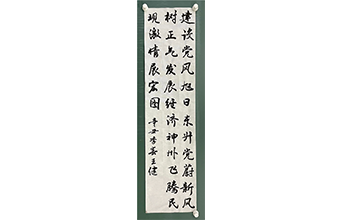 建谈党风旭日东升党蔚新风
树正气发展经济神州飞腾民
现激情展宏图
辛丑季春王健